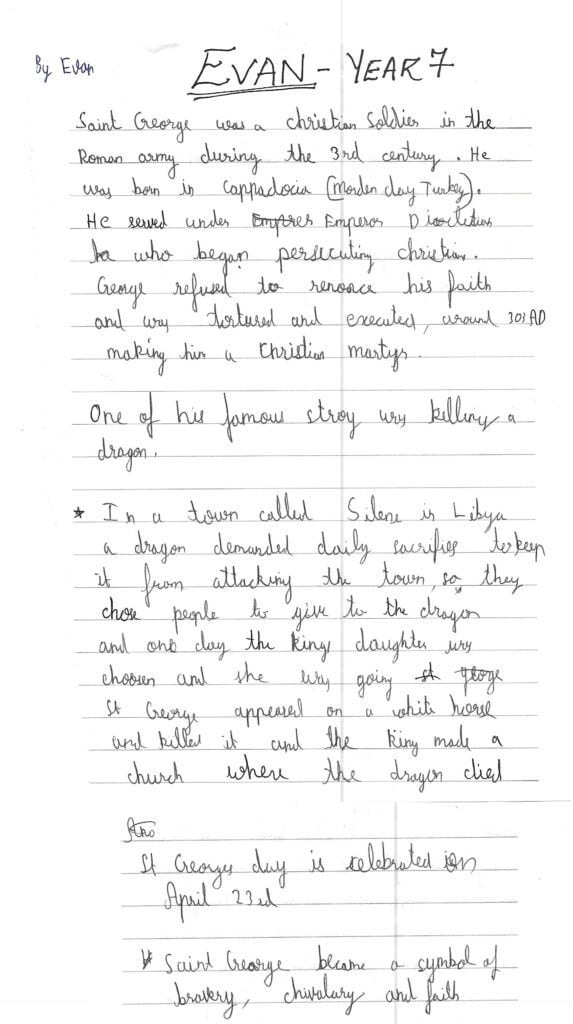 By Evan
EVAN - YEAR 7
Saint George was a christian Soldier in the
Roman army during the 3rd century. He
was born in Cappadocia (Morden day Turkey).
He served under Emperor Diocletian
who began persecuting christian.
George refused to renoace his faith
and was tortured and executed, around 303 AD
making him a Christian martyr.
One of his famous stroy was killing a
dragon.
* In a town called Silene in Libya
a dragon demanded daily sacrifies to keep
it from attacking the town, so they
chose people to give to the dragon
and one day the kings daughter was
choosen and she was going
St George appeared on a white horse
and killed it and the King made a
church where the dragon died
St Georges day is celebrated on
April 23rd
* Saint George became a symbol of
bravery, chivalary and faith